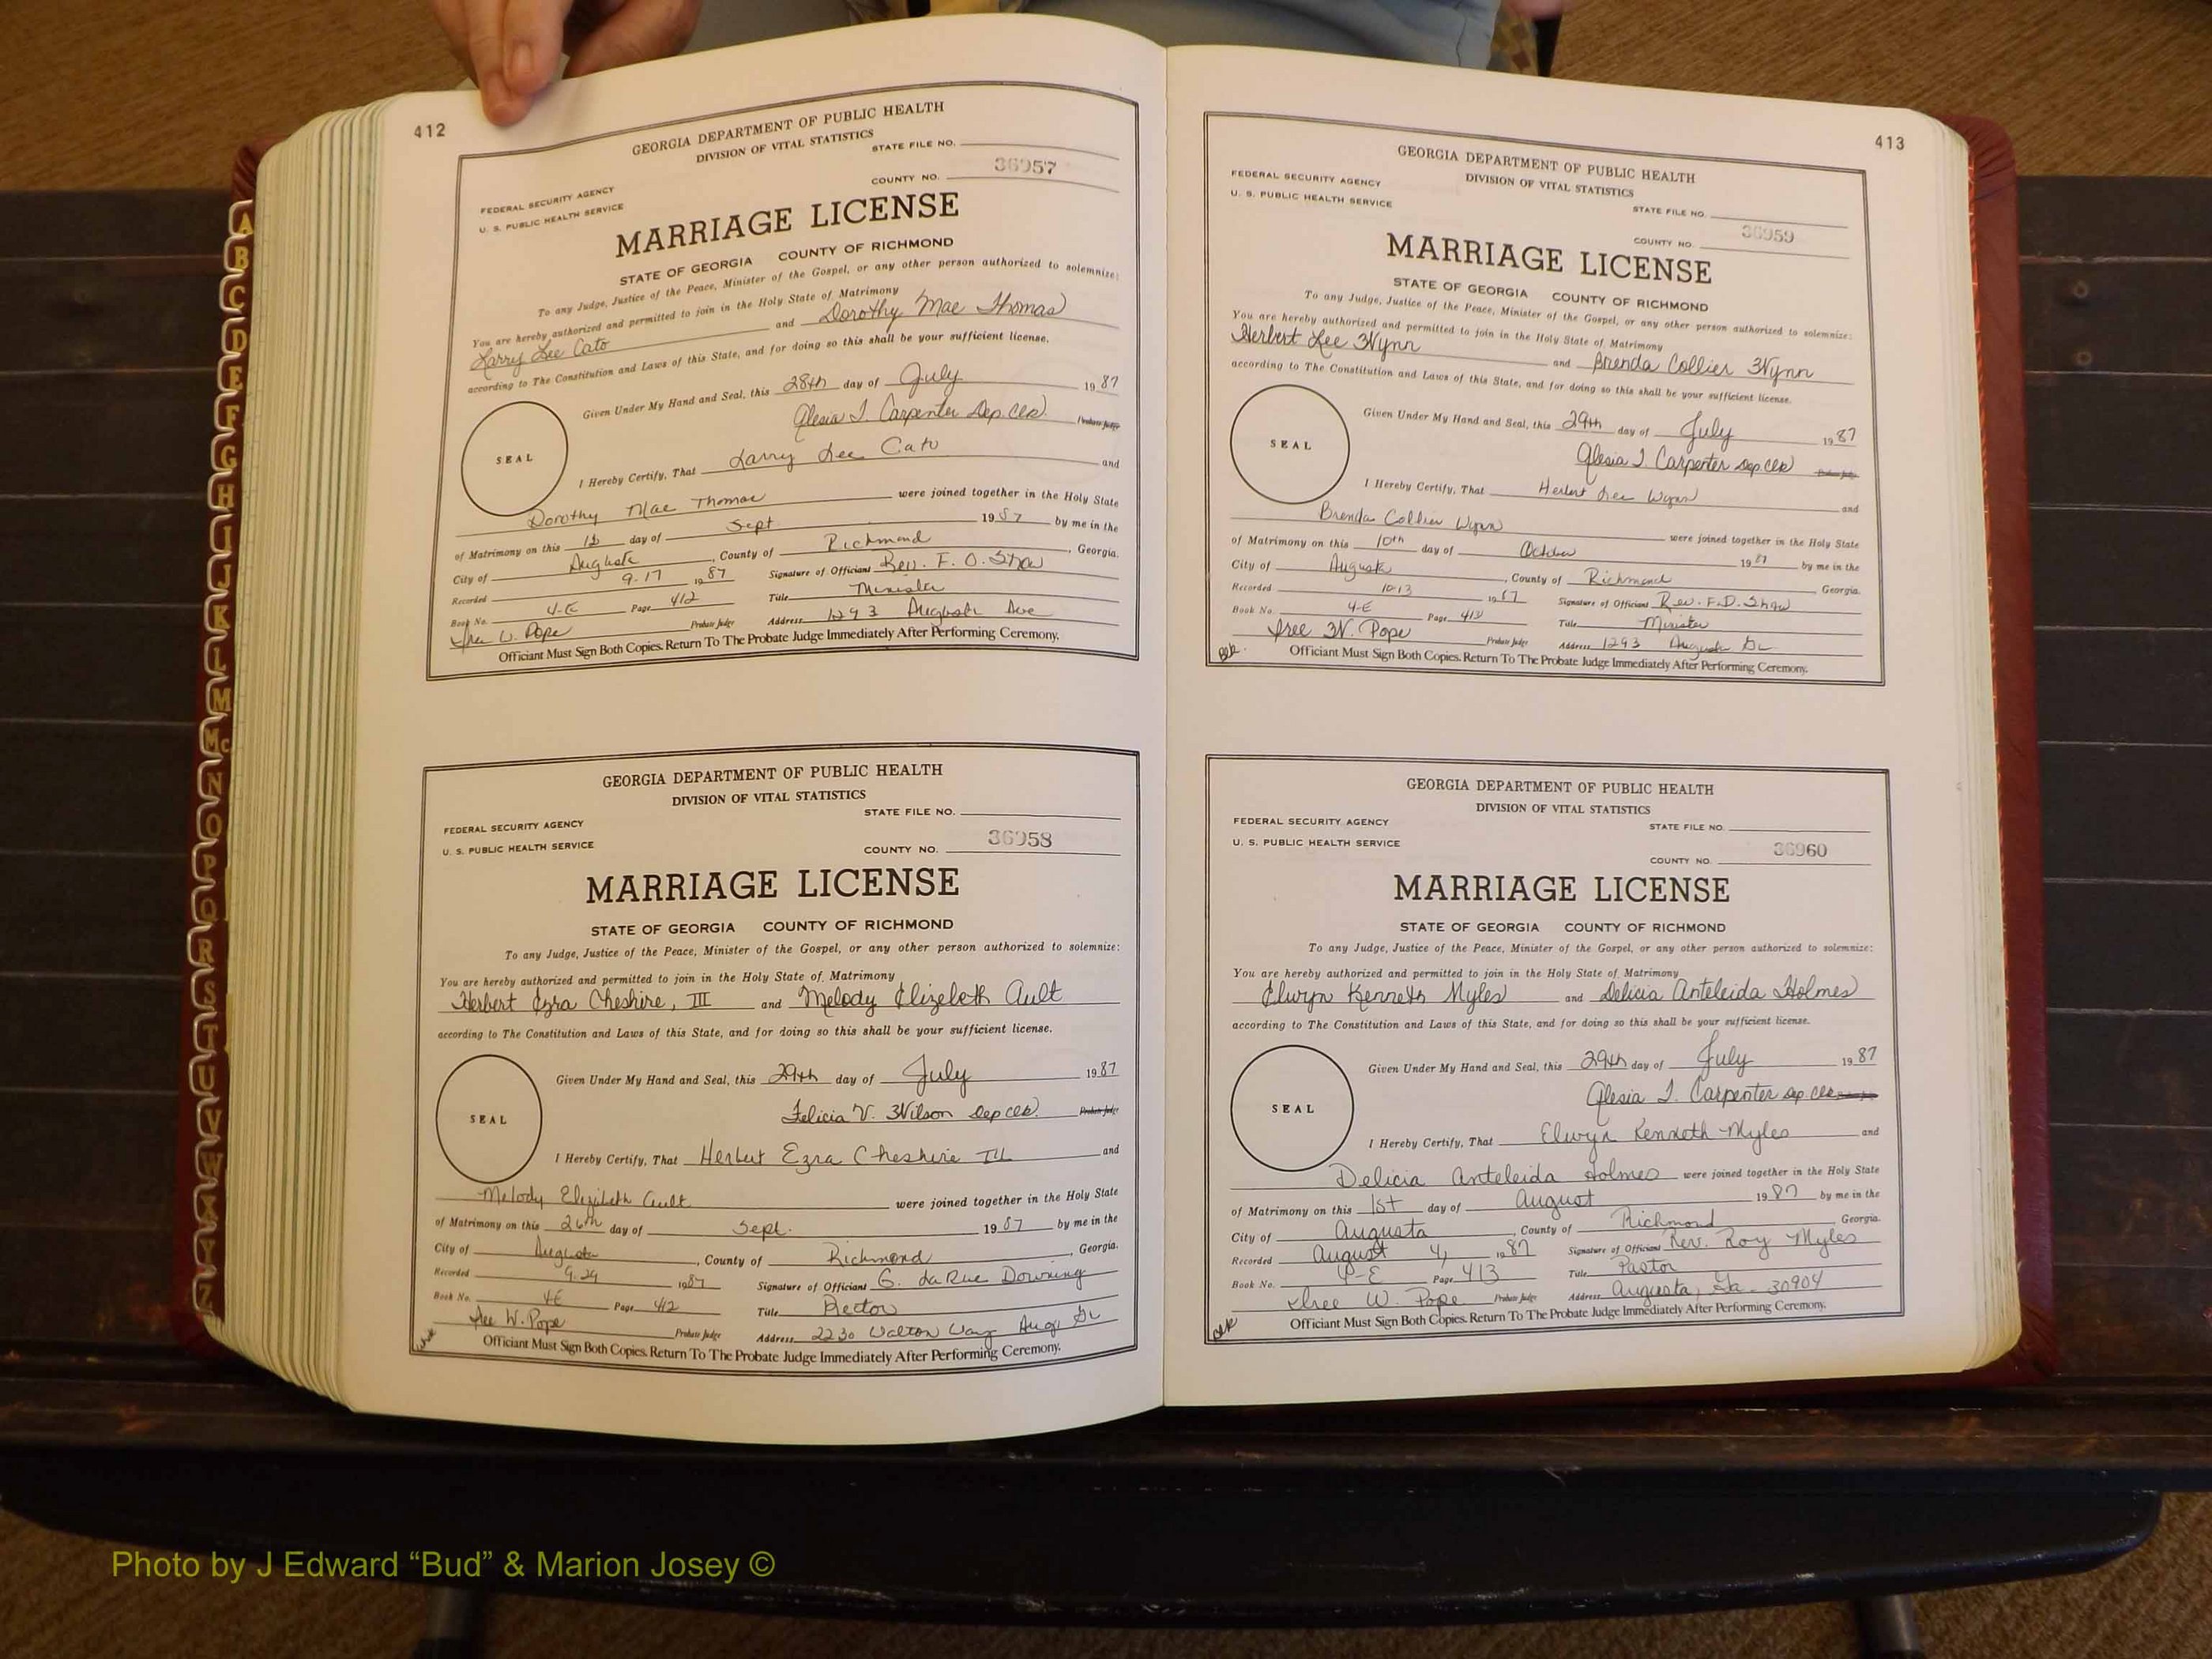 412
GEORGIA DEPARTMENT OF PUBLIC HEALTH
DIVISION OF VITAL STATISTICS
STATE FILE NO.
36957
COUNTY NO.
FEDERAL SECURITY AGENCY
U. S. PUBLIC HEALTH SERVICE
MARRIAGE LICENSE
STATE OF GEORGIA COUNTY OF RICHMOND
To any Judge, Justice of the Peace, Minister of the Gospel, or any other person authorized to solemnize:
You are hereby authorized and permitted to join in the Holy State of Matrimony
Larry Lee Cato and Dorothy Mae Thomas
according to The Constitution and Laws of this State, and for doing so this shall be your sufficient license.
Given Under My Hand and Seal, this 28th day of July 1987
Glesia J. Carpenter Dep. Clk. Probate Judge
SEAL
I Hereby Certify, That Larry Lee Cato and
Dorothy Mae Thomas were joined together in the Holy State
of Matrimony on this day of Sept 1987 by me in the
City of Augusta, County of Richmond, Georgia.
Recorded 9-17 1987 Signature of Officiant Rev. F. D. Shaw
Book No. 4-E Page 412 Title Minister
Iree W. Pope Probate Judge Address 1293 Augusta Ave
Officiant Must Sign Both Copies. Return To The Probate Judge Immediately After Performing Ceremony.
GEORGIA DEPARTMENT OF PUBLIC HEALTH
DIVISION OF VITAL STATISTICS
STATE FILE NO.
FEDERAL SECURITY AGENCY
U. S. PUBLIC HEALTH SERVICE
36958
COUNTY NO.
MARRIAGE LICENSE
STATE OF GEORGIA COUNTY OF RICHMOND
To any Judge, Justice of the Peace, Minister of the Gospel, or any other person authorized to solemnize:
You are hereby authorized and permitted to join in the Holy State of Matrimony
Herbert Ezra Cheshire, III and Melody Elizebeth Ault
according to The Constitution and Laws of this State, and for doing so this shall be your sufficient license.
Given Under My Hand and Seal, this 29th day of July 1987
Felicia V. Wilson Dep Clk. Probate Judge
SEAL
I Hereby Certify, That Herbert Ezra Cheshire III and
Melody Elizibeth Ault were joined together in the Holy State
of Matrimony on this 26th day of Sept. 1987 by me in the
City of Augusta, County of Richmond, Georgia.
Recorded 9-29 1987 Signature of Officiant G. LaRue Downing
Book No. 4E Page 412 Title Rector
Iree W. Pope Probate Judge Address 2230 Walton Way Aug. Ga
Officiant Must Sign Both Copies. Return To The Probate Judge Immediately After Performing Ceremony.
413
GEORGIA DEPARTMENT OF PUBLIC HEALTH
DIVISION OF VITAL STATISTICS
FEDERAL SECURITY AGENCY
U. S. PUBLIC HEALTH SERVICE
STATE FILE NO.
36959
COUNTY NO.
MARRIAGE LICENSE
STATE OF GEORGIA COUNTY OF RICHMOND
To any Judge, Justice of the Peace, Minister of the Gospel, or any other person authorized to solemnize:
You are hereby authorized and permitted to join in the Holy State of Matrimony
Herbert Lee Wynn and Brenda Collier Wynn
according to The Constitution and Laws of this State, and for doing so this shall be your sufficient license.
Given Under My Hand and Seal, this 29th day of July 1987
Glesia J. Carpenter Dep Clk Probate Judge
SEAL
I Hereby Certify, That Herbert Lee Wynn and
Brenda Collier Wynn were joined together in the Holy State
of Matrimony on this 10th day of October 1987 by me in the
City of Augusta, County of Richmond Georgia.
Recorded 10-13 1987 Signature of Officiant Rev. F. D. Shaw
Book No. 4-E Page 413 Title Minister
Iree W. Pope Probate Judge Address 1293 Augusta Ga
Officiant Must Sign Both Copies. Return To The Probate Judge Immediately After Performing Ceremony.
GEORGIA DEPARTMENT OF PUBLIC HEALTH
DIVISION OF VITAL STATISTICS
FEDERAL SECURITY AGENCY
STATE FILE NO.
U. S. PUBLIC HEALTH SERVICE
36960
COUNTY NO.
MARRIAGE LICENSE
STATE OF GEORGIA COUNTY OF RICHMOND
To any Judge, Justice of the Peace, Minister of the Gospel, or any other person authorized to solemnize:
You are hereby authorized and permitted to join in the Holy State of Matrimony
Elwyn Kenneth Myles and Delicia Anteleida Holmes
according to The Constitution and Laws of this State, and for doing so this shall be your sufficient license.
Given Under My Hand and Seal, this 29th day of July 1987
Glesia J. Carpenter Dep. Clk Probate Judge
SEAL
I Hereby Certify, That Elwyn Kenneth Myles and
Delicia Anteleida Holmes were joined together in the Holy State
of Matrimony on this 1st day of August 1987 by me in the
City of Augusta, County of Richmond Georgia.
Recorded August 4, 1987 Signature of Officiant Rev. Roy Myles
Book No. 4-E Page 413 Title Pastor
Iree W. Pope Probate Judge Address Augusta, Ga. 30904
Officiant Must Sign Both Copies. Return To The Probate Judge Immediately After Performing Ceremony.
A
B
C
D
E
F
G
H
I
J
K
L
M
Mc
N
O
P
Q
R
S
T
U
V
W
X
Y
Z
Photo by J Edward “Bud” & Marion Josey ©